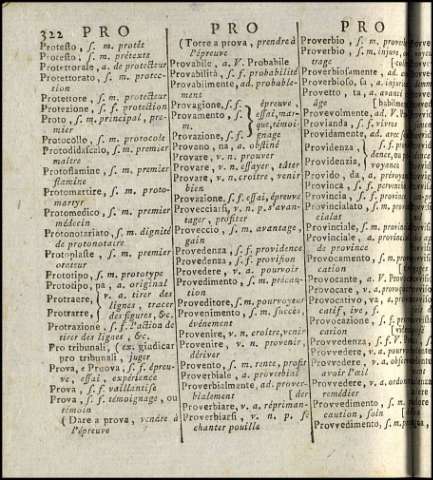 322 PRO PRO PRO
Protesto, s. m. protêt
Protesto, s. m. prétexte
Protettorale, a. de protecteur
Protettorato, s. m. protec-
tion
Protettore, s. m. protecteur
Protezione, s. f. protection
Proto, s. m. principal, pre-
mier
Protocollo, s. m. protocole
Protodidascalo, s. m. premier
maître
Protoflamine, s. m. premier
flamine
Protomartire, s. m. proto-
martyr
Protomedico, s. m. premier
médecin
Protonotariato, s. m. dignité
de protonotaire
Protoplaste, s. m. premier
Prototipo, s. m. prototype
Prototipo, pa, a. original
Protraere, v. a. tirer des
lignes, tracer
Protrarre, des figures, &c.
Protrazione, s. f. l'action de
tirer des lignes, &c.
Pro tribunali, (ex. giudicar
pro tribunali, juger
Prova, e Pruova, s. f. épreu-
ve, essai, expérience
Prova, s. f. vaillantise
Prova, s. f. témoignage, ou
témoin
(Dare a prova, vendre à
l'épreuve
(Torre a prova, prendre à
l'épreuve
Provabile, a. V. Probabile
Provabilità, s. f. probabilité
Provabilmente, ad. probable-
ment
Provagione, s. f. épreuve,
Provamento, s. m. essai, mar-
que, témoi-
Provazione, s. f. gnage
Provano, na, a. obstiné
Provare, v. n. prouver
Provare, v. n. essayer, tâter
Provare, v. n. croître, venir
bien
Provazione, s. f. essai, épreuve
Provecciarsi, v. n. p. s'avan-
tager, profiter
Proveccio, s. m. avantage,
gain
Provedenza, s. f. providence
Provedenza, s. f. provision
Provedere, v. a. pourvoir
Provedimento, s. m. précau-
tion
Proveditore, s. m. pourvoyeur
Provenimento, s. m. succès,
événement
Provenire, v. n. croître, venir
Provenire, v. n. provenir,
dériver
Provento, s. m. rente, profit
Proverbiale, a. proverbial
Proverbialmente, ad. prover-
bialement [der
Proverbiare, v. a. répriman-
Proverbiarsi, v. n. p. se
chanter pouille
Proverbio, s. m.
Proverbio, s. m. injure,
trage
Proverbiosamente, ad.
Proverbioso, sa, a.
Provetto, ta, a.
âge
Provevolmente, ad. V.
Provianda, s. f.
Providamente, ad.
Providenza
Providenzia,
Provido, da, a.
Provinca, s. f.
Provincia, s. f.
Provincialato, s. m.
cialat
Provinciale, s. m.
Provinciale, a.
de province
Provocamento, s. m.
cation
Provocante, a. V.
Provocare, v. a.
Provocativo, va, a.
catif, ive, s. f.
Provocazione, s. f.
cation
Provvedenza, s. f. V.
Provvedere, v. a.
Provvedere, v. a.
avoir l'œil
Provvedere, v. a.
remédier
Provvedimento, s. m.
caution, soin
Provvedimento, s. m.